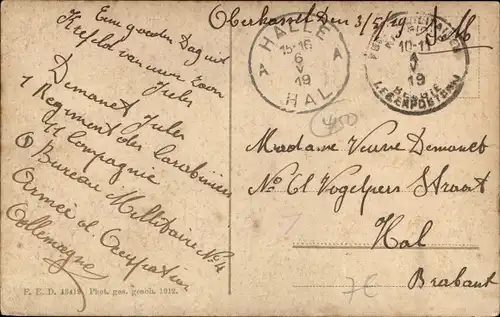 Oberkassel den 3/5/19 S.M.
Een goeden Dag uit
Krefeld van uwen zoon
Jules
Demanet Jules
1 Regiment des Carabiniers
11 Compagnie
Bureau Militaire No 4
Armée d. Occupation
Allemagne
HALLE
15-16
6
V
19
A A
HAL
450
10-11
V
19
BELGIE
LEGERPOSTERIJ
Madame Veuve Demanet
No 61 Vogelpers Straat
Hal
Brabant
F. E. D. Phot. ges. gesch. 1912.